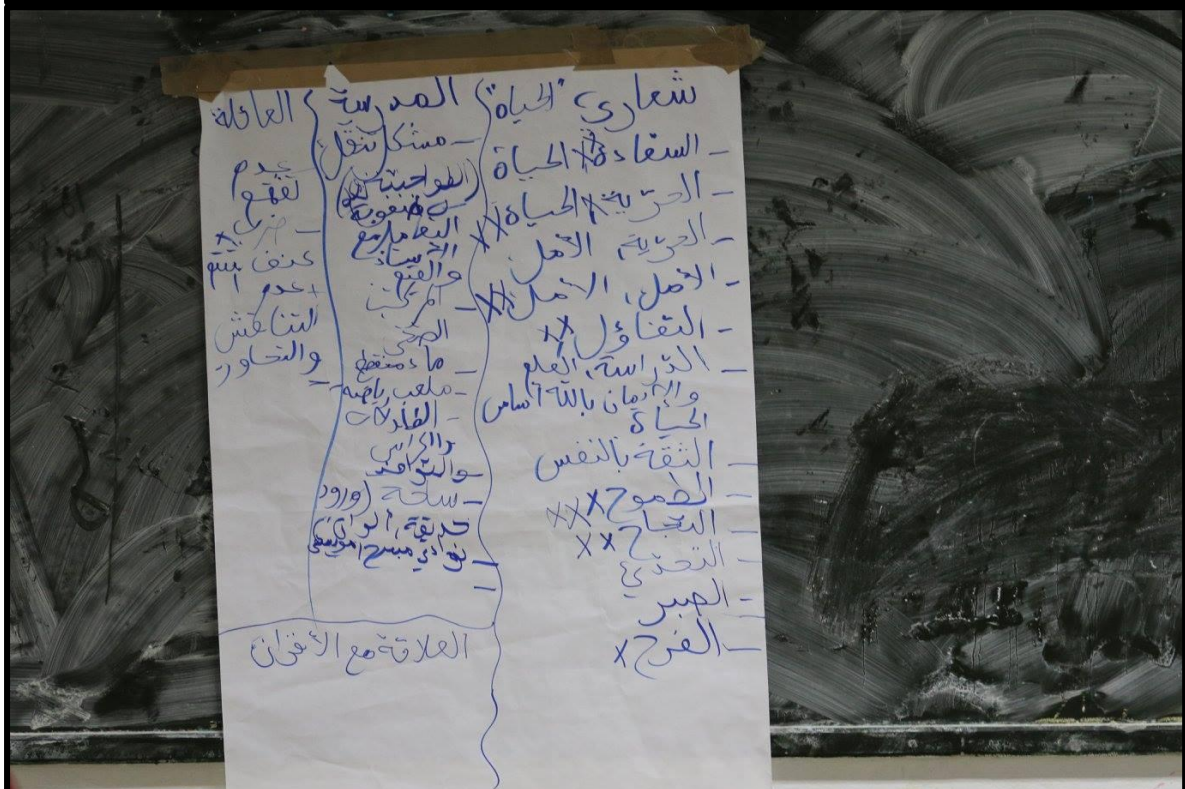 شعاري "الحياة"
- السعادة X الحياة
- الحرّية X الحياة XX
- الحرية الأمل
- الأمل، الأمل XX
- التفاؤل XX
- الدّراسة، العلم
والإيمان بالله أساس
الحياة
- الثقة بالنفس
- الطموح XXX
- النجاح XX
- التحدّي
- الصبر
- الفرح X
المدرسة
- مشكل تنقل
صعوبة
التعامل مع
الصحّي
- ماء منقطع
- ملعب رياضة
- الطاولات
والكراسي
- والنوافذ
- ساحة (ورود
حديقة،
- نوادي مسرح موسيقى
-
العائلة
عدم
تفهم
- ضرب X
عنف
+ عدم
التناقش
والتحاور
-
العلاقة مع الأقران